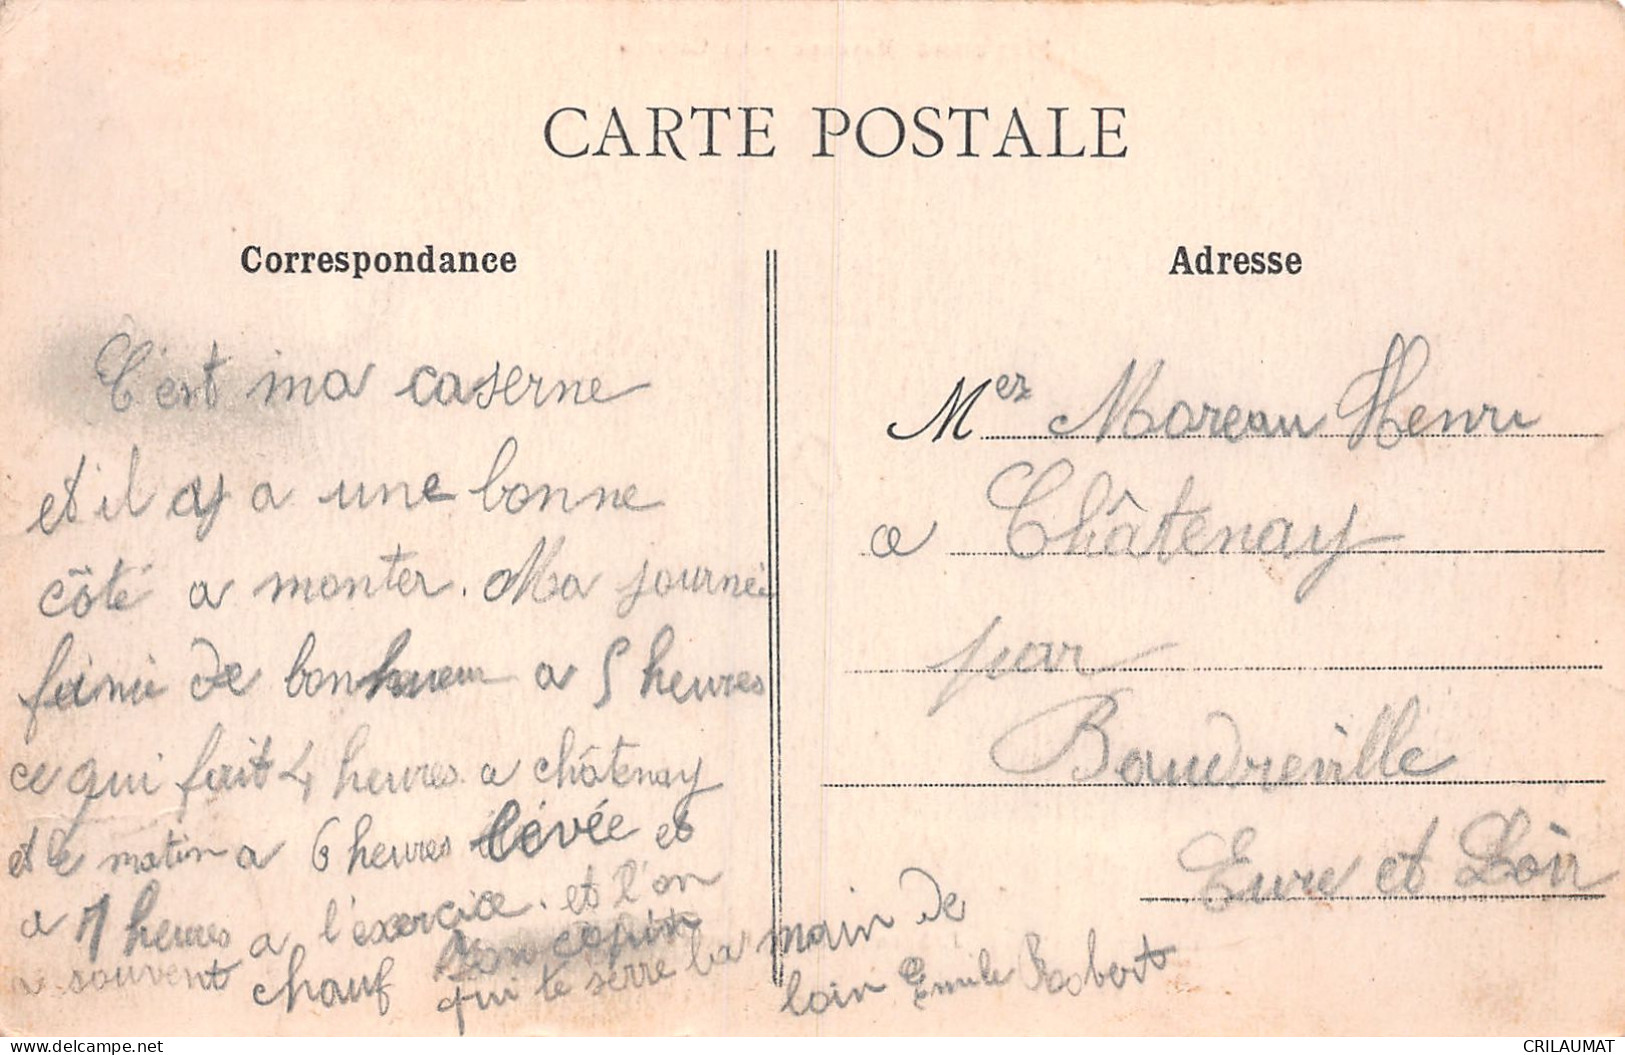 CARTE POSTALE
Correspondance
C'est ma caserne
et il y a une bonne
côté a monter. Ma journée
finie de bonheur a 5 heures
ce qui fait 4 heures a châtenay
et le matin a 6 heures levée et
a 7 heures a l'exercice. et l'on
a souvent chauf
Ton copin
qui te serre la main de
loin Emile Robert
Adresse
Mer Moreau Henri
a Châtenay
par
Baudreville
Eure et Loir
CRILAUMAT